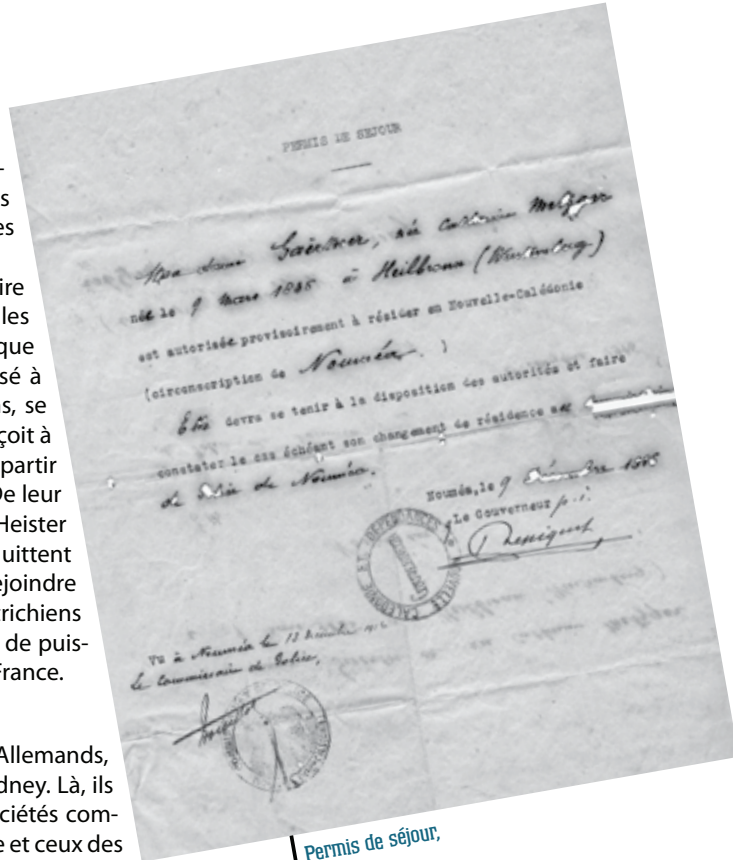 s
es
ire
les
que
sé à
s, se
çoit à
partir
De leur
Heister
uittent
ejoindre
trichiens
de puis-
France.
Allemands,
dney. Là, ils
ciétés com-
e et ceux des
PERMIS DE SEJOUR
Madame Gaertner, née Catherine Metzger
née le 9 mars à Heilbronn (Wurtemberg)
est autorisée provisoirement à résider en Nouvelle-Calédonie
(circonscription de Nouméa.)
devra se tenir à la disposition des autorités et faire
constater le cas échéant son changement de résidence
de de Nouméa.
Nouméa, le 9 Décembre
Le Gouverneur p.i.
Repiquet
ET DEPENDANCES
CALEDONIE
Vu à Nouméa le
Le Commissaire de Police,
Permis de séjour,